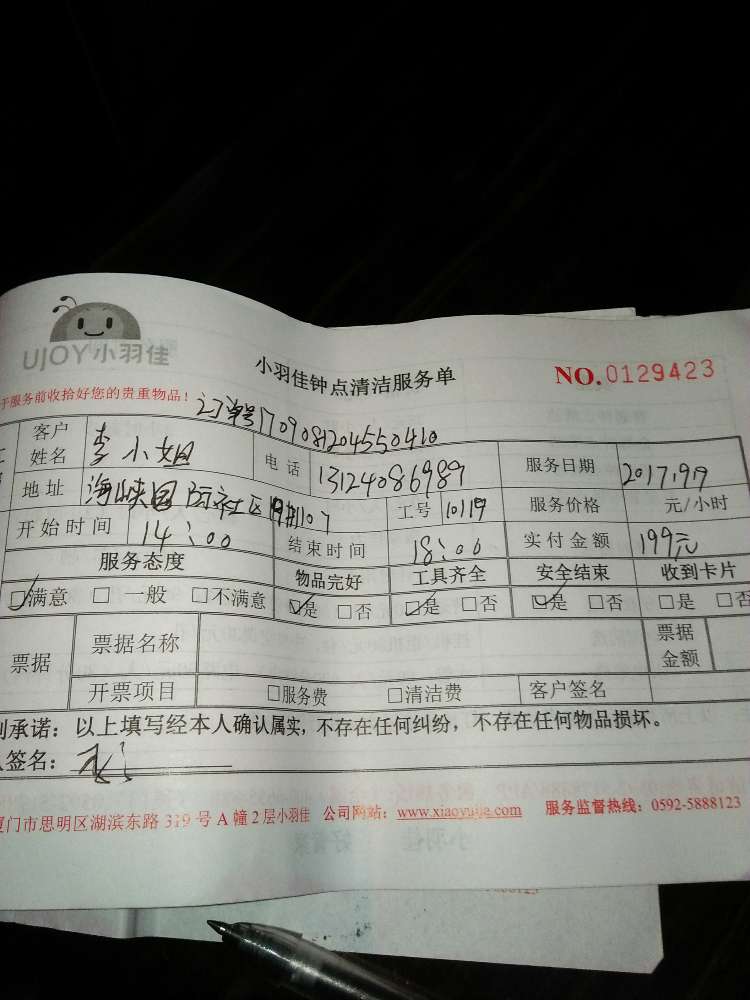 UJOY小羽佳
小羽佳钟点清洁服务单
NO.0129423
于服务前收拾好您的贵重物品！
订单号1709081204550410
客户姓名 李小姐 电话 13124086989 服务日期 2017.9.9
地址 海峡国际社区 107 工号 10119 服务价格 元/小时
开始时间 14:00 结束时间 18:00 实付金额 199元
服务态度 物品完好 工具齐全 安全结束 收到卡片
☑满意 □一般 □不满意 ☑是 □否 ☑是 □否 ☑是 □否 □是 □否
票据 票据名称 票据金额
开票项目 □服务费 □清洁费 客户签名
承诺：以上填写经本人确认属实，不存在任何纠纷，不存在任何物品损坏。
签名：
厦门市思明区湖滨东路319号A幢2层小羽佳 公司网站：www.xiaoyujia.com 服务监督热线：0592-5888123